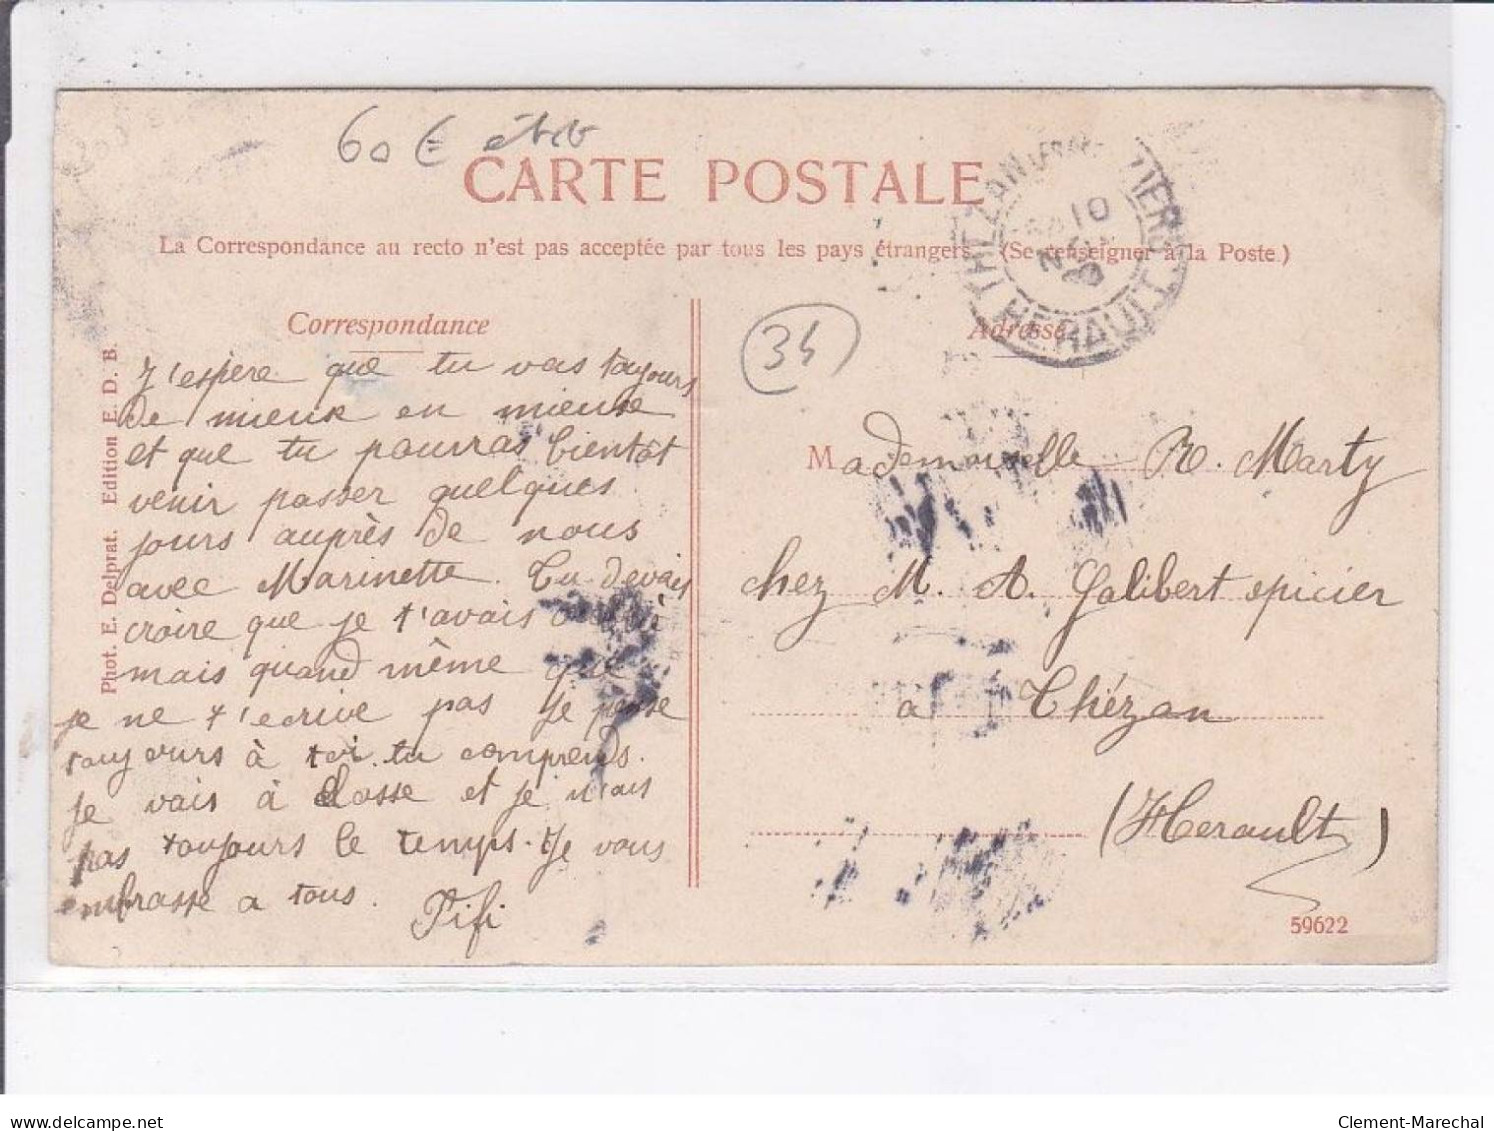 60 €
CARTE POSTALE
La Correspondance au recto n'est pas acceptée par tous les pays étrangers. (Se renseigner à la Poste)
THEZAN
HERAULT
10
Correspondance
J'espère que tu vas toujours
de mieux en mieux
et que tu pourras bientôt
venir passer quelques
jours auprès de nous
avec Marinette. Tu devais
croire que je t'avais oublié
mais quand même que
je ne t'ecrive pas je pense
toujours à toi tu comprends.
je vais à classe et je n'ais
pas toujours le temps. Je vous
embrasse a tous.
Fifi
Phot. E. Delprat. Edition E. D. B.
34
Adresse
Mademoiselle R. Marty
chez M. A. Galibert epicier
a Thézan
(Herault)
59622
delcampe.net
Clement-Marechal